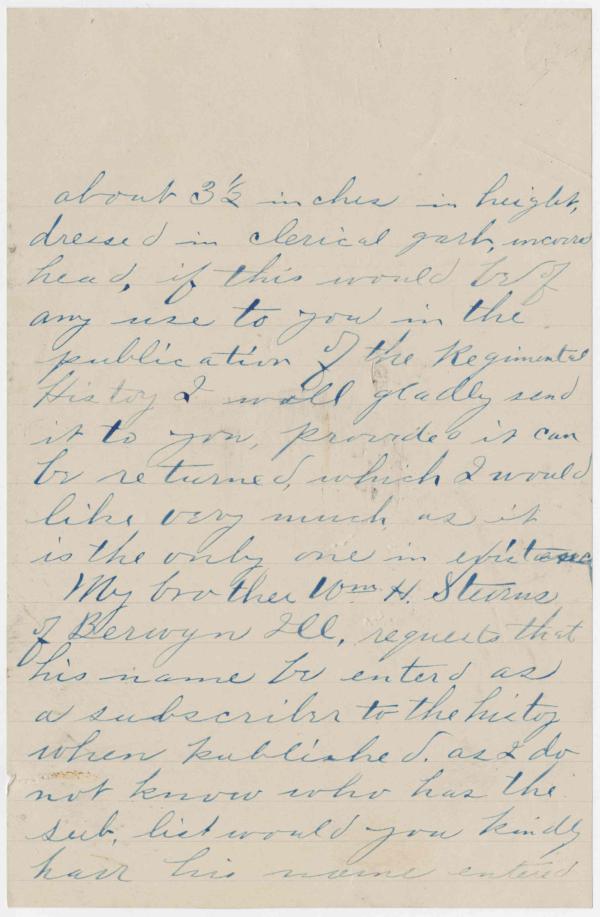 about 3½ inches in height,
dressed in clerical garb,
head, if this would be of
any use to you in the
publication of the Regimental
History I would gladly send
it to you, provided it can
be returned, which I would
like very much as it
is the only one in
My brother Wm H. Sturns
of Berwyn Ill, requests that
his name be enterd as
a subscriber to the histoy
when published. as I do
not know who has the
sub, list would you kindly
have his name entered